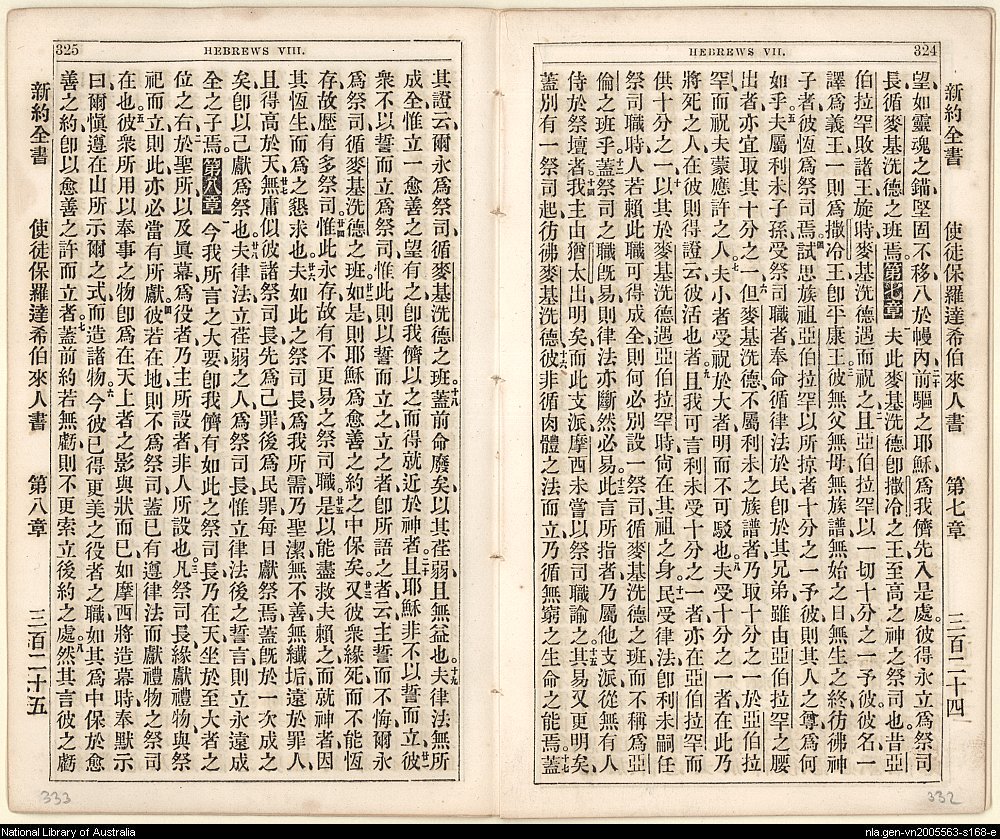 HEBREWS VII. 324
新約全書 使徒保羅達希伯來人書 第七章 三百二十四
望、如靈魂之錨堅固不移、入於幔內、二十前驅之耶穌、爲我儕先入是處、彼得永立爲祭司
長、循麥基洗德之班焉。第七章 一夫此麥基洗德、卽撒冷之王、至高之神之祭司也。昔亞
伯拉罕敗諸王旋時、麥基洗德遇而祝之、二且亞伯拉罕以一切十分之一予彼、彼名一
譯爲義王、一則爲撒冷王、卽平康王、三彼無父、無母、無族譜、無始之日、無生之終、彷彿神
子者、彼恆爲祭司焉。四試思族祖亞伯拉罕、以所掠者十分之一予彼、則其人之尊爲何
如乎。五夫屬利未子孫受祭司職者、奉命循律法、於民卽於其兄弟、雖由亞伯拉罕之腰
出者、亦宜取其十分之一、六但麥基洗德不屬利未之族譜者、乃取十分之一於亞伯拉
罕、而祝夫蒙應許之人、七夫小者受祝於大者、明而不可駁也。八夫受十分之一者、在此乃
將死之人、在彼則得證云彼活也者、九且我可言利未受十分之一者、亦在亞伯拉罕而
供十分之一、十以其於麥基洗德遇亞伯拉罕時、尙在其祖之身、十一民受律法、卽利未嗣任
祭司職時、人若賴此職可得成全、則何必別設一祭司、循麥基洗德之班、而不稱爲亞
倫之班乎、十二蓋祭司之職旣易、則律法亦斷然必易、十三此言所指者、乃屬他支派、從無有人
侍於祭壇者、十四我主由猶太出明矣、而此支派、摩西未嘗以祭司職諭之、十五其易又更明矣、
蓋別有一祭司起、彷彿麥基洗德、十六彼非循肉體之法而立、乃循無窮之生命之能焉。十七蓋
332
325 HEBREWS VIII.
其證云、爾永爲祭司、循麥基洗德之班。十八蓋前命廢矣、以其荏弱且無益也。十九夫律法無所
成全、惟立一愈善之望有之、卽我儕以之而得就近於神者、二十且耶穌非不以誓而立、廿一彼
衆不以誓而立爲祭司、惟此則以誓而立之、立之者卽所語之者云、主誓而不悔、爾永
爲祭司、循麥基洗德之班、廿二如是則耶穌爲愈善之約之中保矣、廿三又彼衆緣死而不能恆
存、故歷有多祭司、廿四惟此永存、故有不更易之祭司職、廿五是以能盡救夫賴之而就神者、因
其恆生而爲之懇求也。廿六夫如此之祭司長、爲我所需、乃聖潔無不善、無纖垢、遠於罪人、
且得高於天、廿七無庸似彼諸祭司長、先爲己罪、後爲民罪、每日獻祭焉、蓋旣於一次成之
矣、卽以己獻爲祭也。廿八夫律法立荏弱之人爲祭司長、惟立律法後之誓言、則立永遠成
全之子焉。第八章 一今我所言之大要、卽我儕有如此之祭司長、乃在天、坐於至大者之
位之右、二於聖所、以及眞幕爲役者、乃主所設者、非人所設也。三凡祭司長、緣獻禮物與祭
祀而立、則此亦必當有所獻、四彼若在地、則不爲祭司、蓋已有遵律法而獻禮物之祭司
在也、五彼衆所用以奉事之物、卽爲在天上者之影與狀而已、如摩西將造幕時、奉默示
曰、爾愼遵在山所示爾之式、而造諸物、六今彼已得更美之役者之職、如其爲中保於愈
善之約、卽以愈善之許而立者。七蓋前約若無虧、則不更索立後約之處、八然其言彼之虧
新約全書 使徒保羅達希伯來人書 第八章 三百二十五
333
National Library of Australia
nla.gen-vn2005563-s168-e